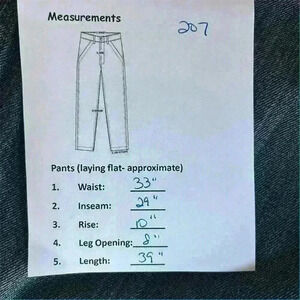 Measurements
207
Pants (laying flat- approximate)
1. Waist: 33"
2. Inseam: 29"
3. Rise: 10"
4. Leg Opening: 8"
5. Length: 39"